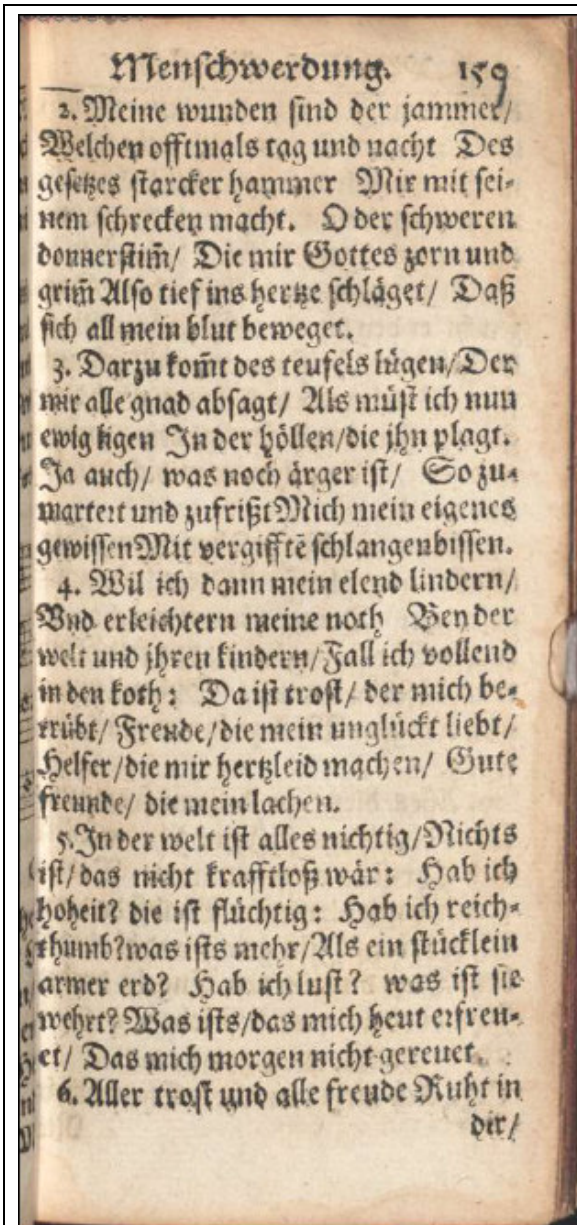 Menschwerdung. 159
2. Meine wunden sind der jammer/
Welchen offtmals tag und nacht Des
gesetzes starcker hammer Mir mit sei-
nem schrecken macht. O der schweren
donnerstim̃/ Die mir Gottes zorn und
grim̃ Also tief ins hertze schläget/ Daß
sich all mein blut beweget.
3. Darzu kom̃t des teufels lügen/Der
mir alle gnad absagt/ Als müst ich nun
ewig ligen In der höllen/die jhn plagt.
Ja auch/ was noch ärger ist/ So zu-
martert und zufrißt Mich mein eigenes
gewissen Mit vergifftē schlangenbissen.
4. Wil ich dann mein elend lindern/
Vnd erleichtern meine noth Bey der
welt und jhren kindern/Fall ich vollend
in den koth: Da ist trost/ der mich be-
trübt/ Freude/die mein unglückt liebt/
Helfer/die mir hertzleid machen/ Gute
freunde/ die mein lachen.
5. In der welt ist alles nichtig/Nichts
ist/das nicht krafftloß wär: Hab ich
hoheit? die ist flüchtig: Hab ich reich-
thumb? was ists mehr/Als ein stücklein
armer erd? Hab ich lust? was ist sie
wehrt? Was ists/das mich heut erfreu-
et/ Das mich morgen nicht gereuet.
6. Aller trost und alle freude Ruht in
dir/